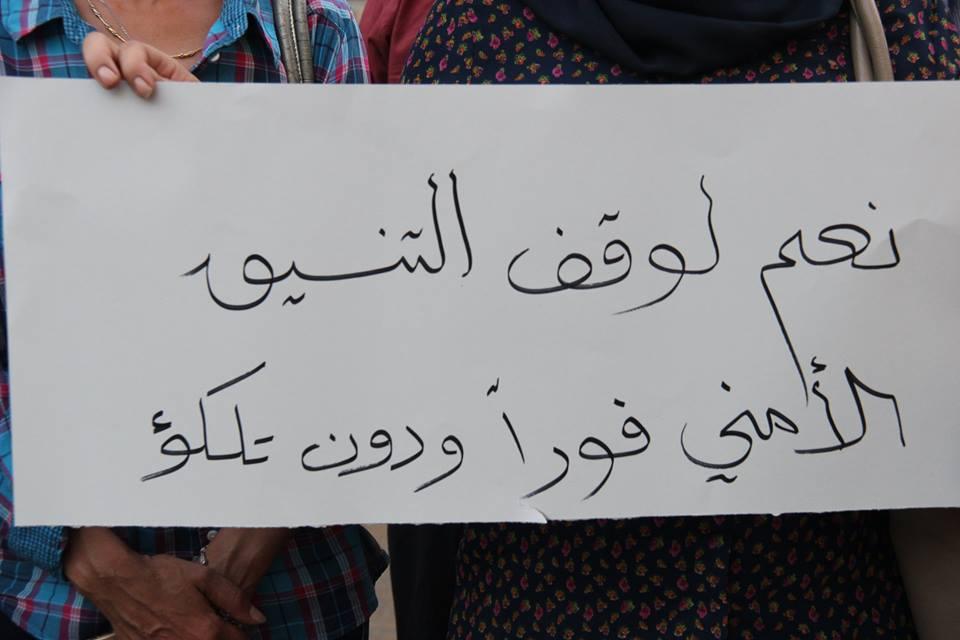 نعم لوقف التنسيق
الأمني فوراً ودون تلكؤ